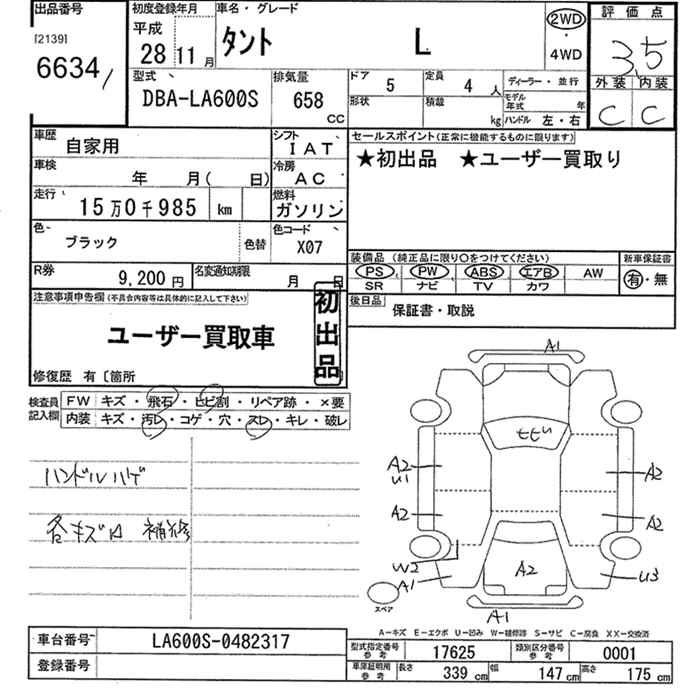 出品番号
[2139]
6634/
初度登録年月
平成
28年11月
車名・グレード
タント L
2WD
・
4WD
評価点
3.5
外装 内装
C C
型式
DBA-LA600S
排気量
658
CC
ドア 5
定員 4人
形状
積載 kg
ディーラー・並行
モデル年式 年
ハンドル 左・右
車歴 自家用
シフト IAT
車検 年 月( 日)
冷房 AC
走行 15万0千985 km
燃料 ガソリン
色 ブラック 色替
色コード X07
R券 9,200円
名変通知期限 月 日
セールスポイント(正常に機能するものに限ります)
★初出品 ★ユーザー買取り
装備品 (純正品に限り○をつけてください)
新車保証書
PS PW ABS エアB AW
SR ナビ TV カワ
有・無
後日品
保証書・取説
注意事項申告欄(不具合内容等は具体的に記入して下さい)
ユーザー買取車
初出品
修復歴 有〔箇所
検査員記入欄
FW キズ・飛石・ヒビ割・リペア跡・×要
内装 キズ・汚レ・コゲ・穴・スレ・キレ・破レ
ハンドルハゲ
各キズ 補修
A1
ヒビ
A2
U1
A2
A2
A2
W2
A1
A2
U3
A1
スペア
A-キズ E-エクボ U-凹み W-補修跡 S-サビ C-腐食 XX-交換済
車台番号 LA600S-0482317
登録番号
型式指定番号 参考 17625
類別区分番号 参考 0001
車庫証明用 参考 長さ 339 cm 幅 147 cm 高さ 175 cm